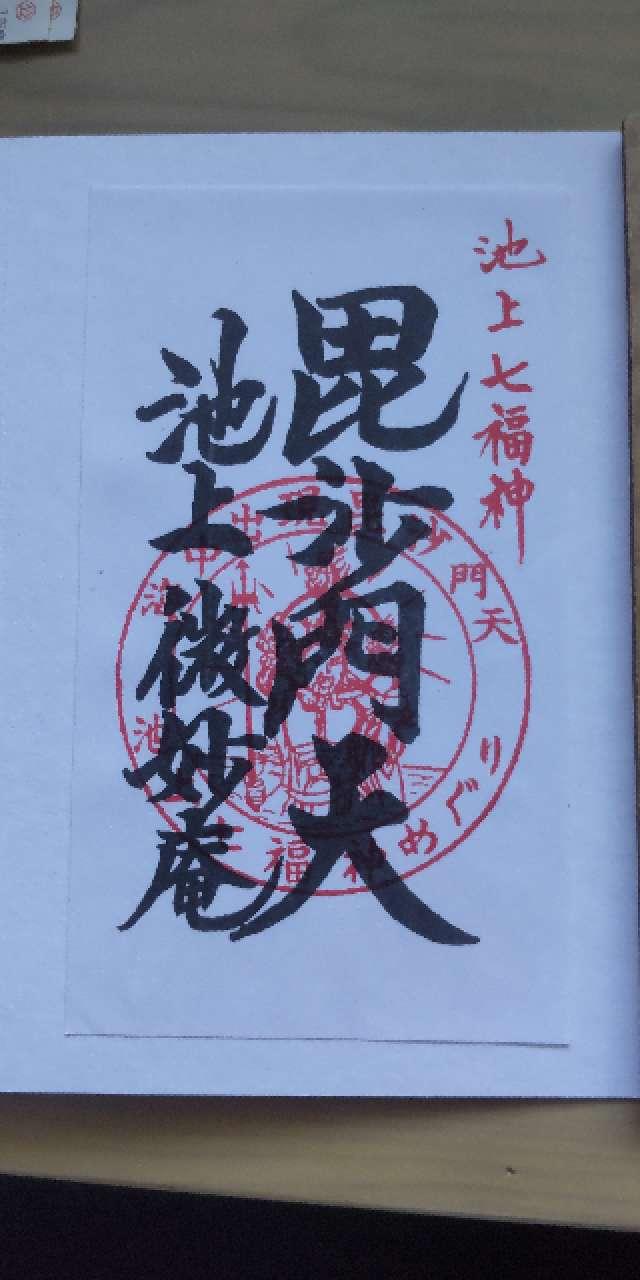 池上七福神
毘沙門天
池上微妙庵
門天
めぐり
福